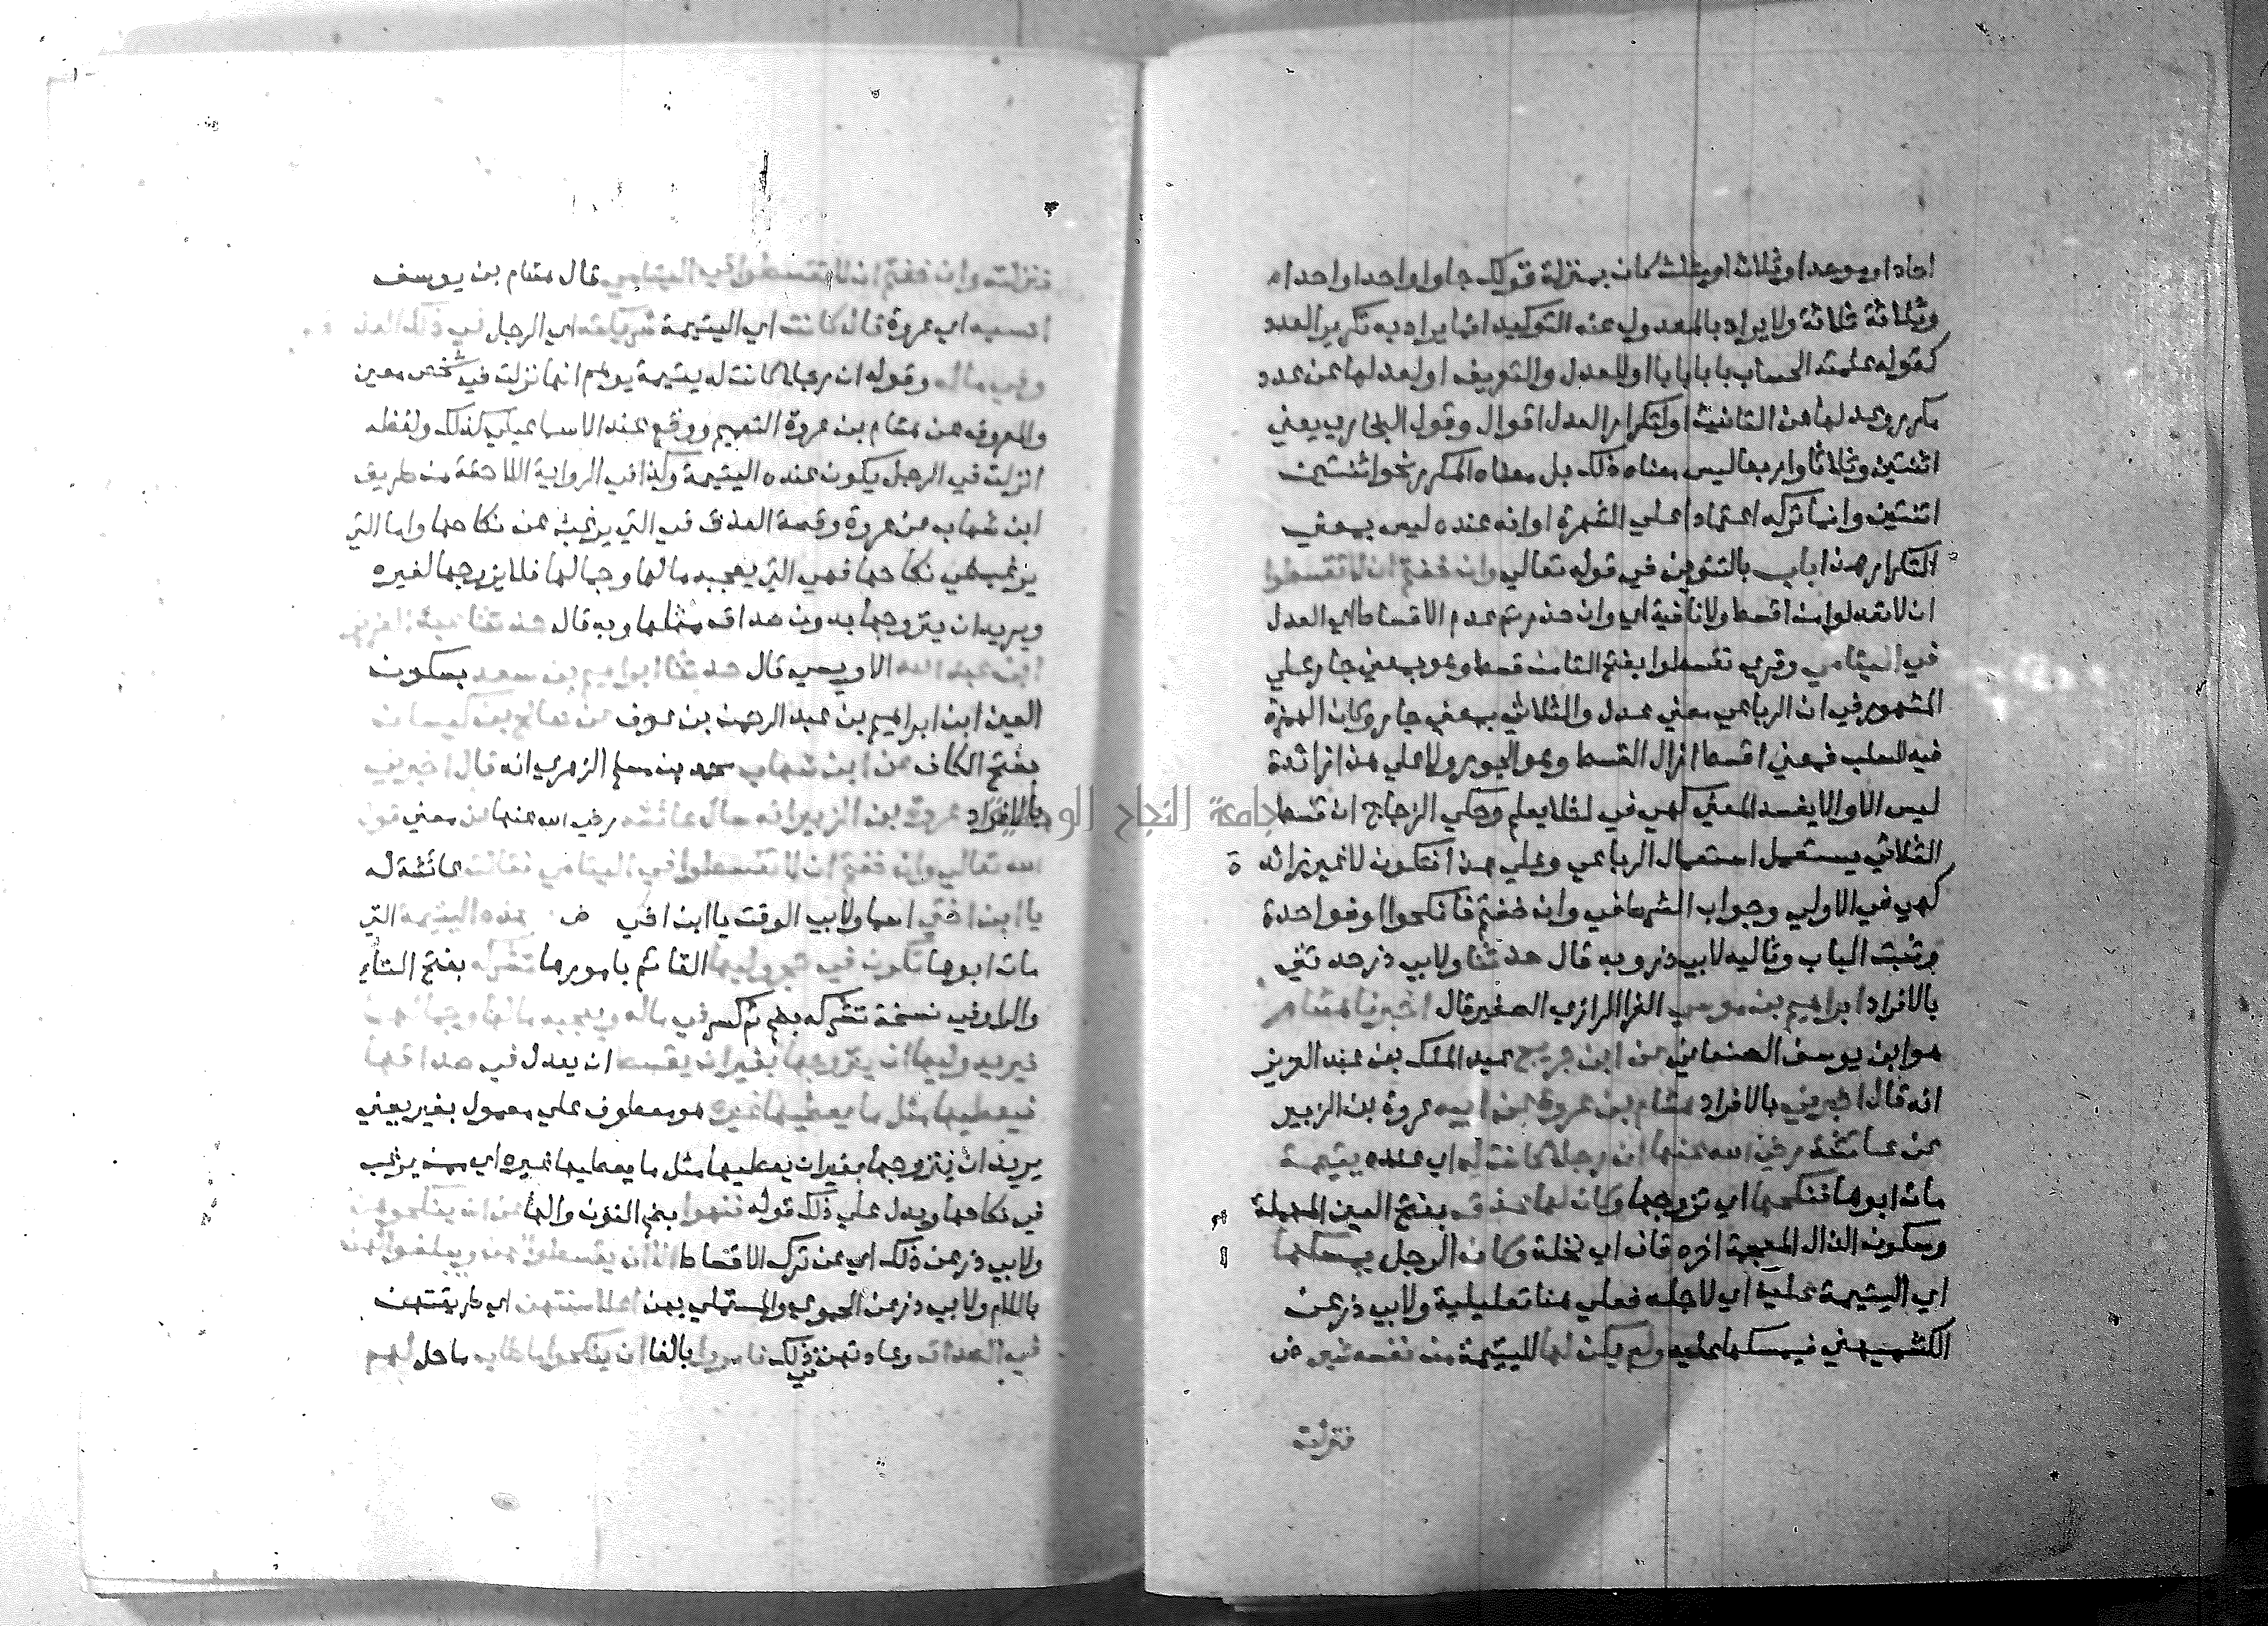 احاد او موحد او ثلاث او مثلث كان بمنزلة قولك جاوا واحدا واحدا
وثلاثة ثلاثة ولا يراد بالمعدول عنه التوكيد انما يراد به تكرير العدد
كقوله علمته الحساب بابا بابا او للعدل والتعريف او لعدلها عن عدد
مكرر وعدلها عن التانيث او لتكرار العدل اقوال وقول البخاري يعني
اثنتين وثلاثا واربعا ليس معناه ذلك بل معناه المكرر نحو اثنتين
اثنتين وانما تركه اعتمادا على الشهرة او انه عنده ليس بمعنى
التكرار هذا باب بالتنوين في قوله تعالي وان خفتم ان لا تقسطوا
ان لا تعدلوا من اقسط ولا نافية اي وان حذرتم عدم الاقساط اي العدل
في اليتامي وقري تقسطوا بفتح التا من قسط وهو بمعني جار علي
المشهور في ان الرباعي بمعني عدل والثلاثي بمعني جار وكان الهمزة
فيه للسلب فمعني اقسط ازال القسط وهو الجور ولا علي هذا زائدة
ليس الا والا يفسد المعني كهي في لئلا يعلم وحكي الزجاج ان قسط
الثلاثي يستعمل استعمال الرباعي وعلي هذا فتكون لا غير زائد ة
كهي في الاولي وجواب الشرط في وان خفتم فانكحوا او فواحدة
وثبت الباب وتاليه لابي ذر وبه قال حدثنا ولابي ذر حدثني
بالافراد ابراهيم بن موسي الفرا الرازي الصغير قال اخبرنا هشام
هو ابن يوسف الصنعاني عن ابن جريج عبد الملك بن عبد العزيز
انه قال اخبرني بالافراد هشام بن عروة عن ابيه عروة بن الزبير
عن عائشة رضي الله عنها ان رجلا كانت له اي عنده يتيمة
مات ابوها فنكحها اي تزوجها وكان لها عذق بفتح العين المهملة
وسكون الذال المعجمة اخره قاف اي نخلة وكان الرجل يمسكها
اي اليتيمة عليه اي لاجله فعلي هنا تعليلية ولابي ذر عن
الكشميهني فيمسكها عليه ولم يكن لها لليتيمة من نفسه شي
فنزلت
فنزلت وان خفتم ان لا تقسطوا في اليتامي قال هشام بن يوسف
احسبه اي عروة قال كانت اي اليتيمة شريكته اي الرجل في ذلك العذق
وفي ماله وقوله ان رجلا كانت له يتيمة يوهم انها نزلت في شخص معين
والمعروف عن هشام بن عروة التعميم ووقع عند الاسماعيلي كذلك ولفظه
انزلت في الرجل يكون عنده اليتيمة وكذا في الرواية اللاحقة من طريق
ابن شهاب عن عروة وقصة العذق في التي يرغب عن نكاحها واما التي
يرغب في نكاحها فهي التي يعجبه مالها وجمالها فلا يزوجها لغيره
ويريد ان يتزوجها بدون صداق مثلها وبه قال حدثنا عبد العزيز
ابن عبد الله الاويسي قال حدثنا ابراهيم بن سعد بسكون
العين ابن ابراهيم بن عبد الرحمن بن عوف عن صالح بن كيسان
بفتح الكاف عن ابن شهاب محمد بن مسلم الزهري انه قال اخبرني
بالافراد عروة بن الزبير انه سال عائشة رضي الله عنها عن معني قول
الله تعالي وان خفتم ان لا تقسطوا في اليتامي فقالت عائشة له
يا ابن اختي اسما ولابي الوقت يا ابن اخي هذه اليتيمة التي
مات ابوها تكون في حجر وليها القائم بامورها تشركه بفتح التاء
والرا وفي نسخة تشركه بضم ثم كسر في ماله ويعجبه مالها وجمالها
فيريد وليها ان يتزوجها بغير ان يقسط ان يعدل في صداقها
فيعطيها مثل ما يعطيها غيره هو معطوف علي معمول بغير يعني
يريد ان يتزوجها بغير ان يعطيها مثل ما يعطيها غيره اي ممن يرغب
في نكاحها ويدل علي ذلك قوله فنهوا بضم النون والها عن ان ينكحوهن
ولابي ذر عن ذلك اي عن ترك الاقساط الا ان يقسطوا لهن ويبلغوا لهن
باللام ولابي ذر عن الحموي والمستملي بهن اعلا سنتهن اي طريقتهن
في الصداق وعادتهن في ذلك فامروا بالفا ان ينكحوا ما طاب ما حل لهم
جامعة النجاح الوطنية